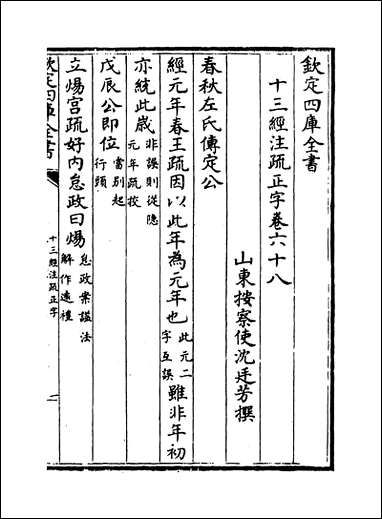 欽定四庫全書
十三經注疏正字卷六十八
山東按察使沈廷芳撰
春秋左氏傳定公
經元年春王疏因以此年為元年也此元二字互誤雖非年初
亦統此歲非誤則從隱元年疏挍
戊辰公即位當别起行頭
立煬宫疏好内怠政曰煬怠政案謚法解作遠禮
欽定四庫全書
十三經注疏正字
一